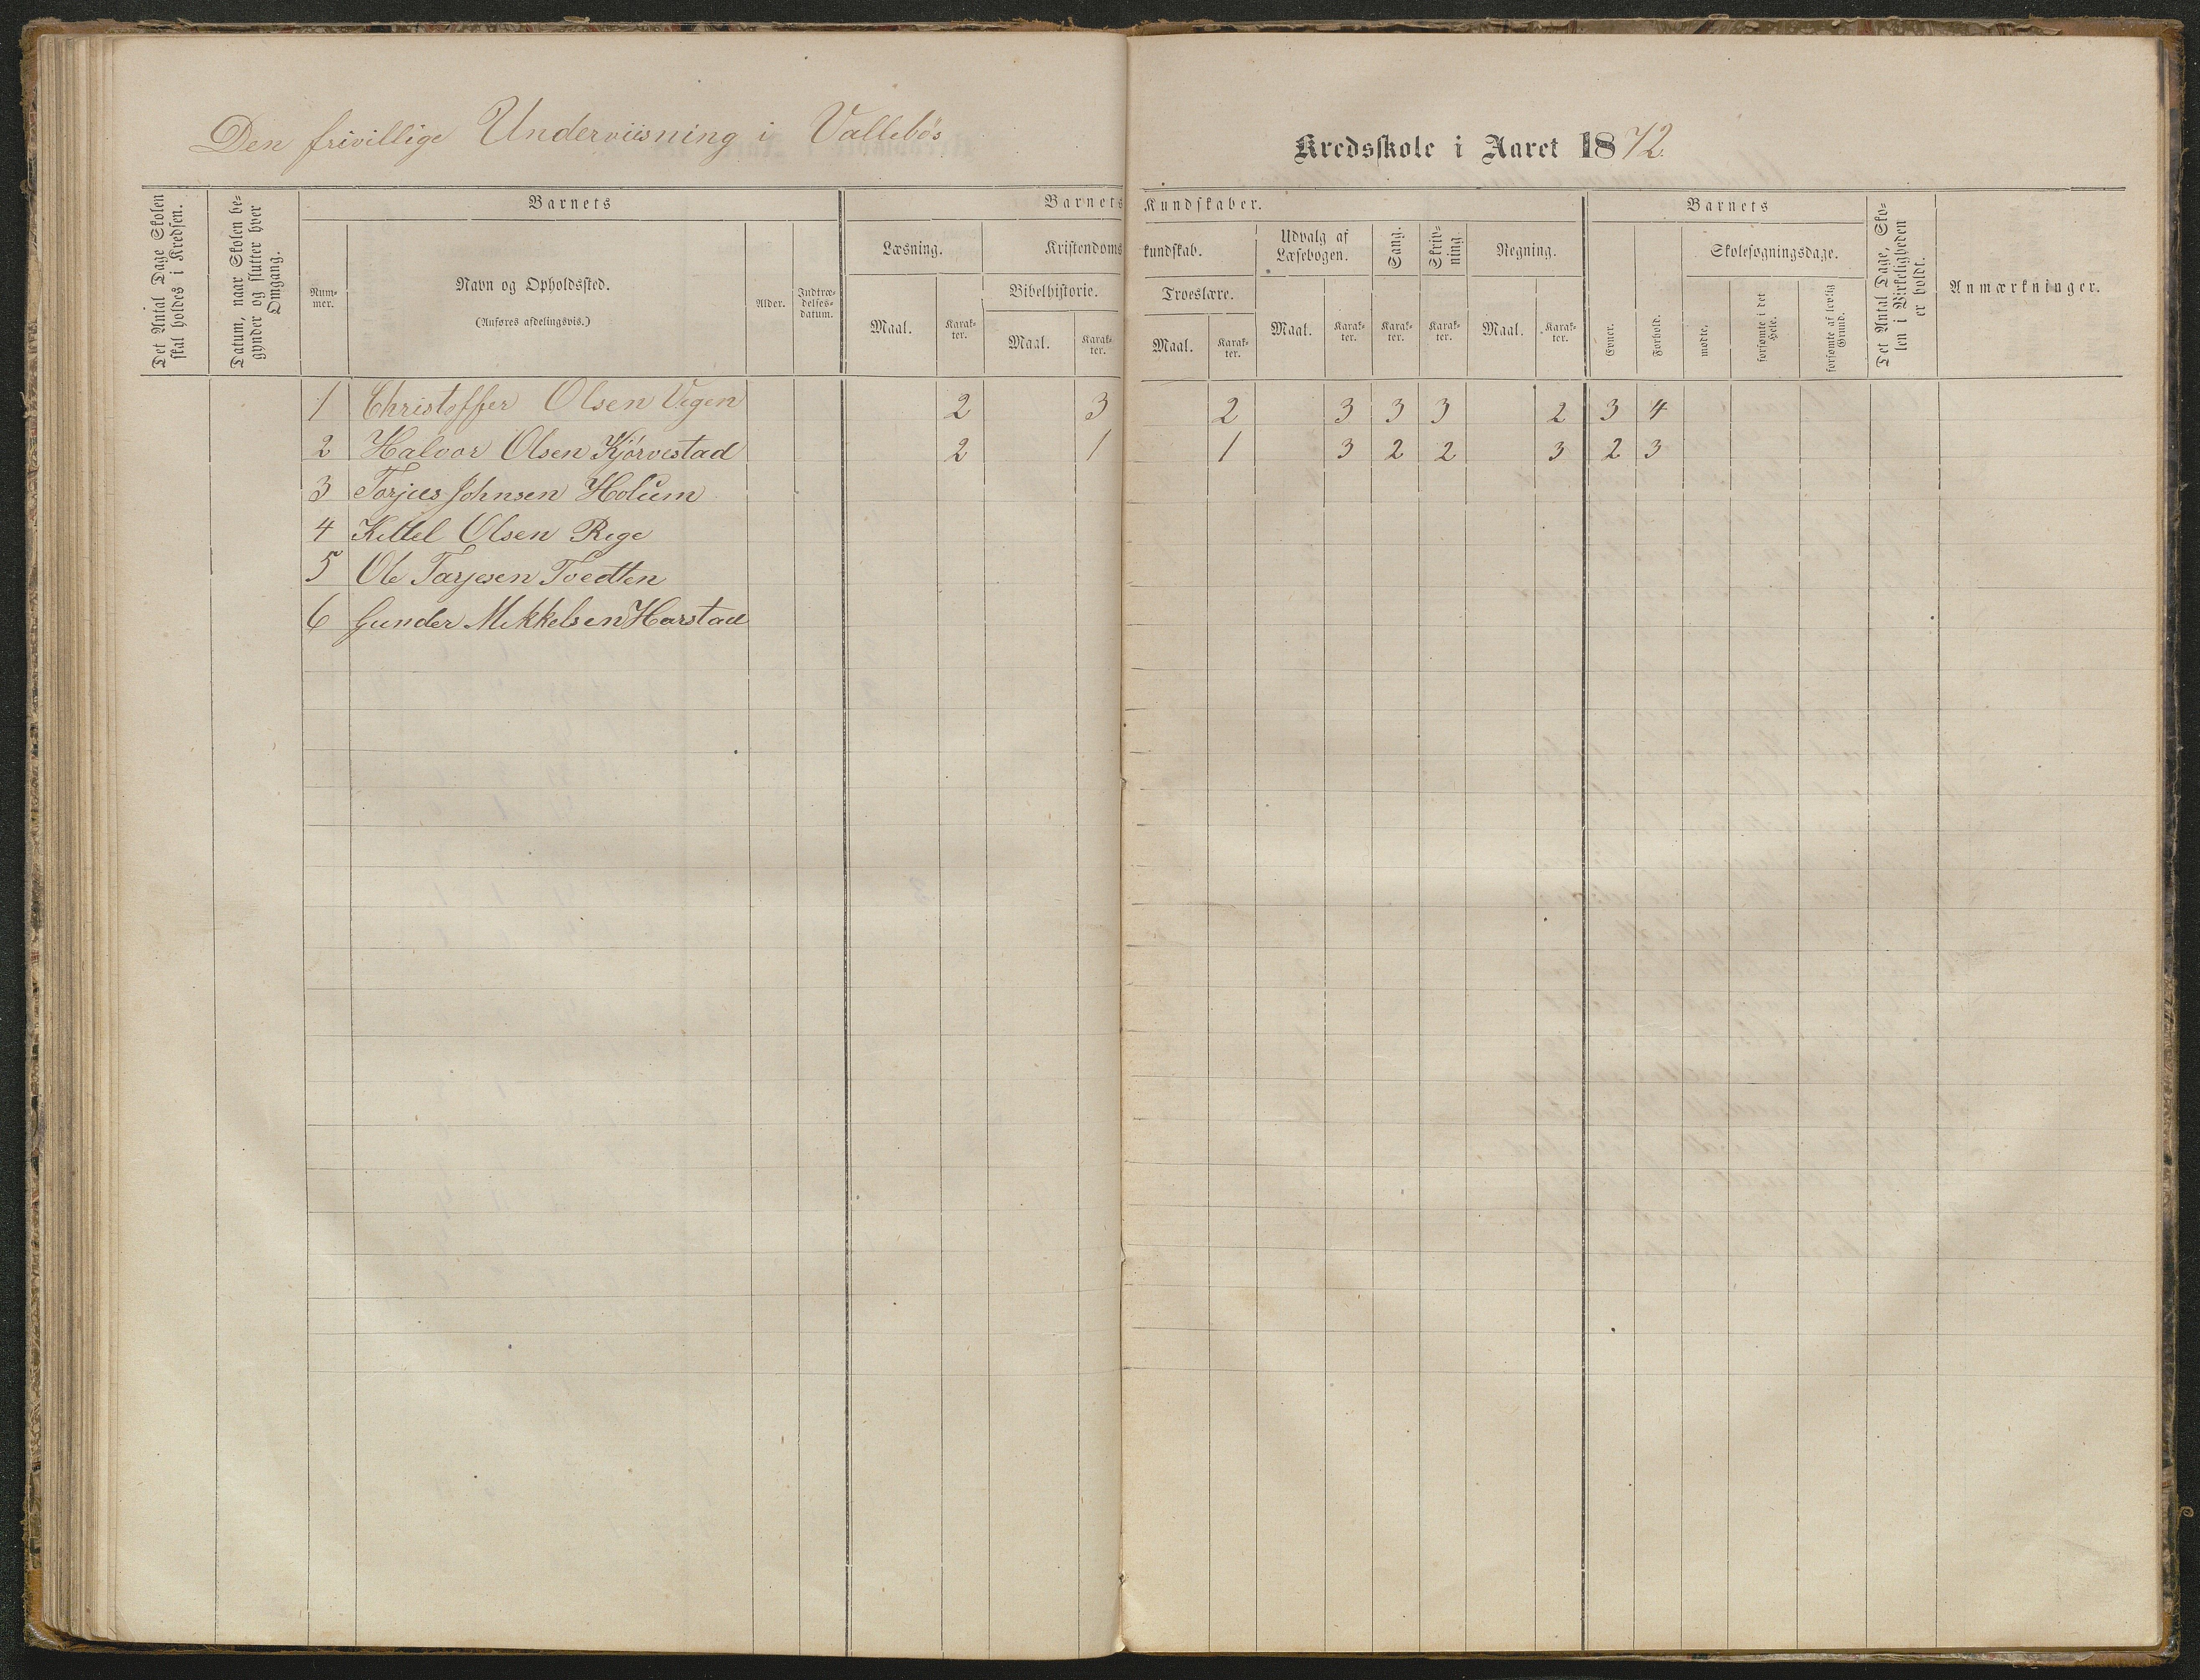 Den frivillige Underviisning i Vallebøs
Kredsskole i Aaret 1872.
Det Antal Dage Skolen skal holdes i Kredsen.
Datum, naar Skolen begynder og slutter hver Omgang.
Barnets
Nummer.
Navn og Opholdssted.
(Anføres afdelingsvis.)
Alder.
Indtrædelsesdatum.
Barnets Kundskaber.
Læsning.
Maal.
Karakter.
Kristendomskundskab.
Bibelhistorie.
Maal.
Karakter.
Troeslære.
Maal.
Karakter.
Udvalg af Læsebogen.
Maal.
Karakter.
Sang.
Karakter.
Skrivning.
Karakter.
Regning.
Maal.
Karakter.
Barnets
Evner.
Forhold.
Skolesøgningsdage.
mødte,
forsømte i det Hele.
forsømte af lovlig Grund.
Det Antal Dage, Skolen i Virkeligheden er holdt.
Anmærkninger.
1 Christoffer Olsen Vegen 2 3 2 3 3 3 2 3 4
2 Halvor Olsen Kjørvestad 2 1 1 3 2 2 3 2 3
3 Torjus Johnsen Holum
4 Kittel Olsen Rege
5 Ole Tarjesen Tvedten
6 Gunder Mikkelsen Harstad